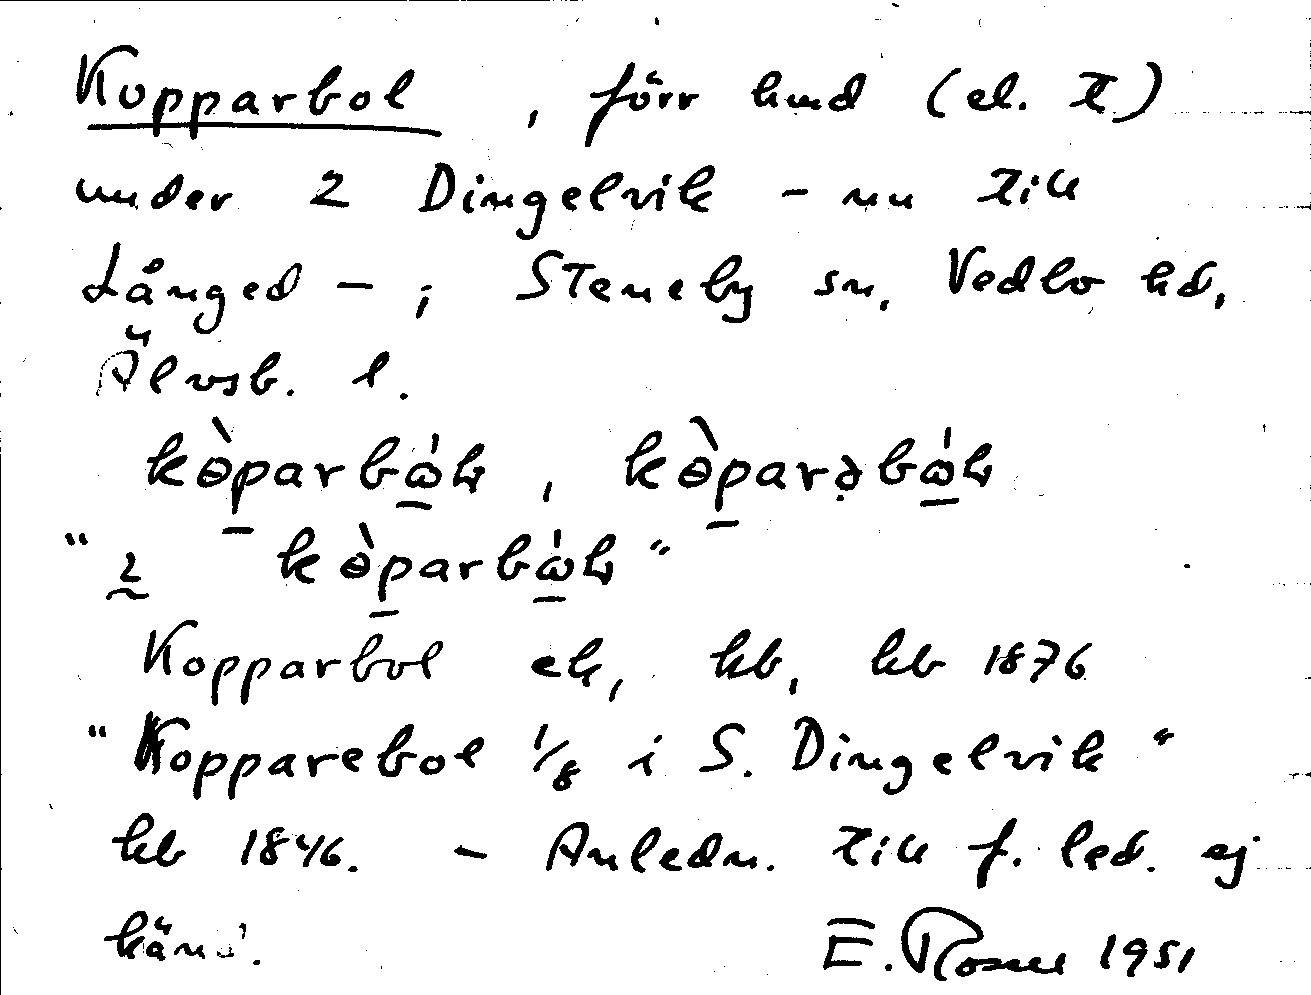 Kopparbol, förr hmd (el. t)
under 2 Dingelvik - nu till
Långed - ; Steneby sn, Vedbo hd,
Älvsb. l.
kɵ̀parbώɫ, kɵ̀parəbώɫ
"2 kɵ̀parbώɫ"
Kopparbol ek, kb, kb 1876
"Kopparebol 1/8 i S. Dingelvik"
kb 1846. - Anledn. till f. led. ej
känd.
E. Rosell 1951